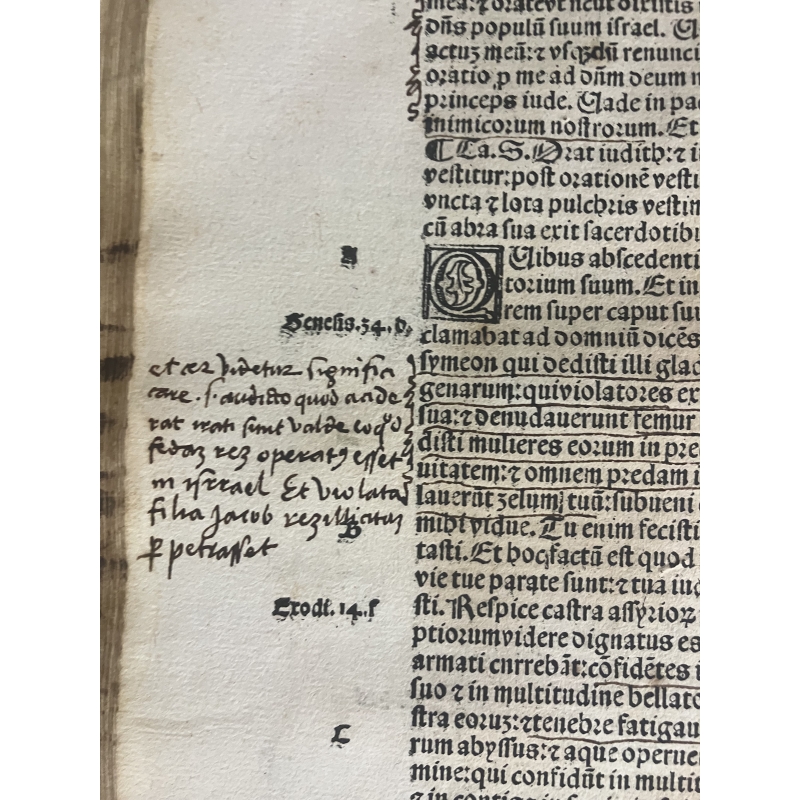 dñs populũ suum israel.
actuʒ meũ:⁊ vsqʒdũ renunci
oratio ꝓ me ad dñm deum
princeps iude. Uade in pa
inimicorum nostrorum. Et
¶ Ca. S. Orat iudith:⁊ i
vestitur:post orationē vesti
vncta ⁊ lota pulchris vestim
cũ abra sua exit sacerdotibu
A
QUibus abscedenti
torium suum. Et in
rem super caput suu
Genesis.34.
clamabat ad dominũ dicēs
symeon qui dedisti illi glad
genarum:qui violatores ex
sua:⁊ denudauerunt femur
disti mulieres eorum in pre
uitatem:⁊ omnem predam i
lauerũt zelum tuũ:subueni
mihi vidue. Tu enim fecisti
tasti. Et hoc factũ est quod
vie tue parate sunt:⁊ tua iud
sti. Respice castra assyrioꝝ
ptiorum videre dignatus es
armati cnrrebãt:cõfidētes i
suo ⁊ in multitudine bellato
stra eoruʒ:⁊ tenebre fatigau
rum abyssus:⁊ aque operue
mine:qui confidũt in multit
et videtur signifi
care . s. audito quod accide
rat irati sunt valde eo qd
fedaʒ reʒ operatꝰ esset
in israel Et violata
filia Jacob reʒ illicitaʒ
ꝑpetrasset
B
Exodi.14.f
C